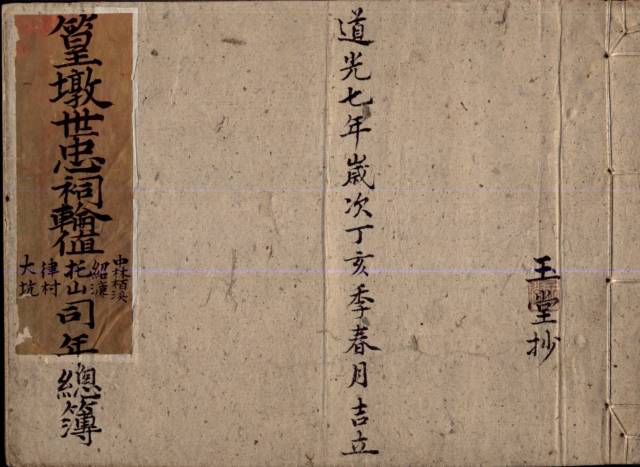 玉堂抄
道光七年歲次丁亥季春月吉立
篁墩世忠祠輪值
中林栢溪
紹濂
托山
律村
大坑
司年總簿